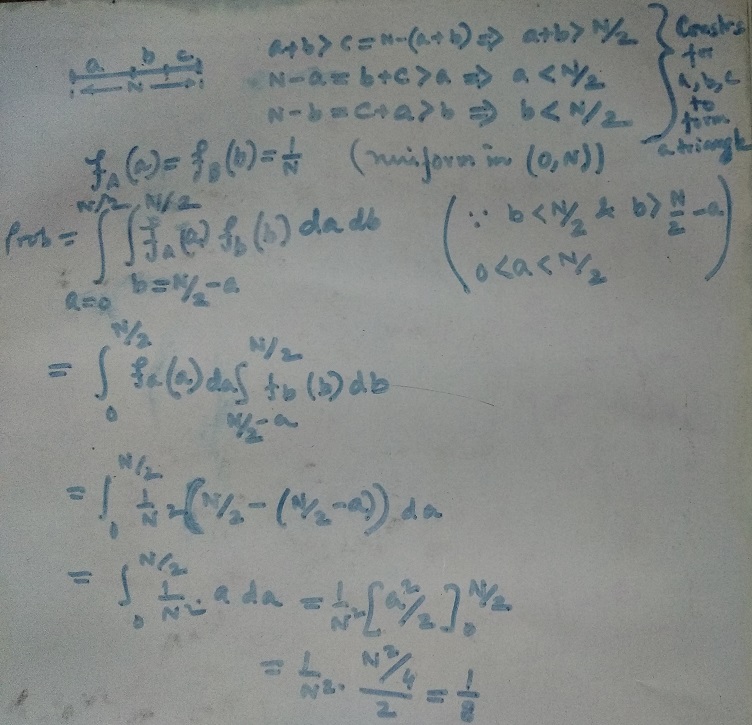 a b c
N
a+b > c = N-(a+b) ⇒ a+b > N/2
N-a = b+c > a ⇒ a < N/2
N-b = c+a > b ⇒ b < N/2
to
a, b, c
to
form
a triangle
f_A(a) = f_B(b) = 1/N (uniform in (0,N))
Prob = ∫_{a=0}^{N/2} ∫_{b=N/2-a}^{N/2} f_A(a) f_b(b) da db (∵ b < N/2 & b > N/2 - a
0 < a < N/2)
= ∫_0^{N/2} f_a(a) da ∫_{N/2-a}^{N/2} f_b(b) db
= ∫_0^{N/2} 1/N² (N/2 - (N/2-a)) da
= ∫_0^{N/2} 1/N² · a da = 1/N² [a²/2]_0^{N/2}
= 1/N² · (N²/4)/2 = 1/8